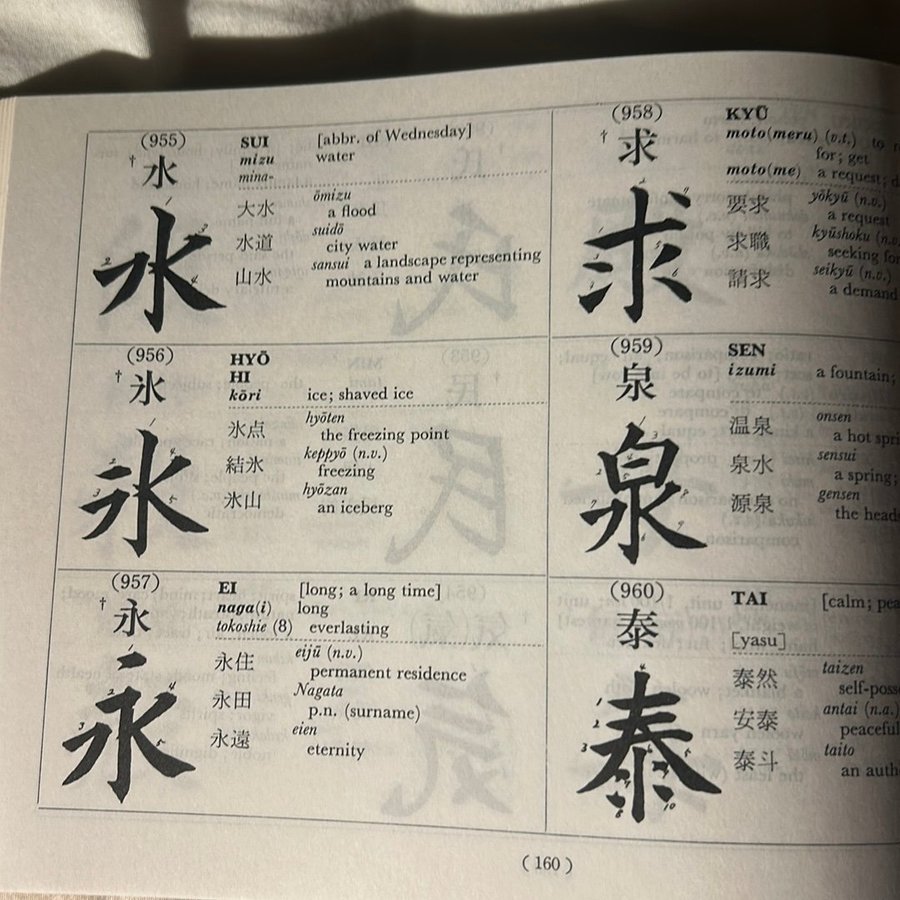 (955)
† 水
水
SUI [abbr. of Wednesday]
mizu water
mina-
大水 ōmizu
a flood
水道 suidō
city water
山水 sansui a landscape representing
mountains and water
(956)
† 氷
氷
HYŌ
HI
kōri ice; shaved ice
氷点 hyōten
the freezing point
結氷 keppyō (n.v.)
freezing
氷山 hyōzan
an iceberg
(957)
† 永
永
EI [long; a long time]
naga(i) long
tokoshie (8) everlasting
永住 eijū (n.v.)
permanent residence
永田 Nagata
p.n. (surname)
永遠 eien
eternity
(958)
† 求
求
KYŪ
moto(meru) (v.t.) to
for; get
moto(me) a request;
要求 yōkyū (n.v.)
a request
求職 kyūshoku
seeking for
請求 seikyū (n.v.)
a demand
(959)
泉
泉
SEN
izumi a fountain;
温泉 onsen
a hot
泉水 sensui
a spring;
源泉 gensen
the
(960)
泰
泰
TAI [calm;
[yasu]
泰然 taizen
安泰 antai (n.a.)
泰斗 taito
an
(160)